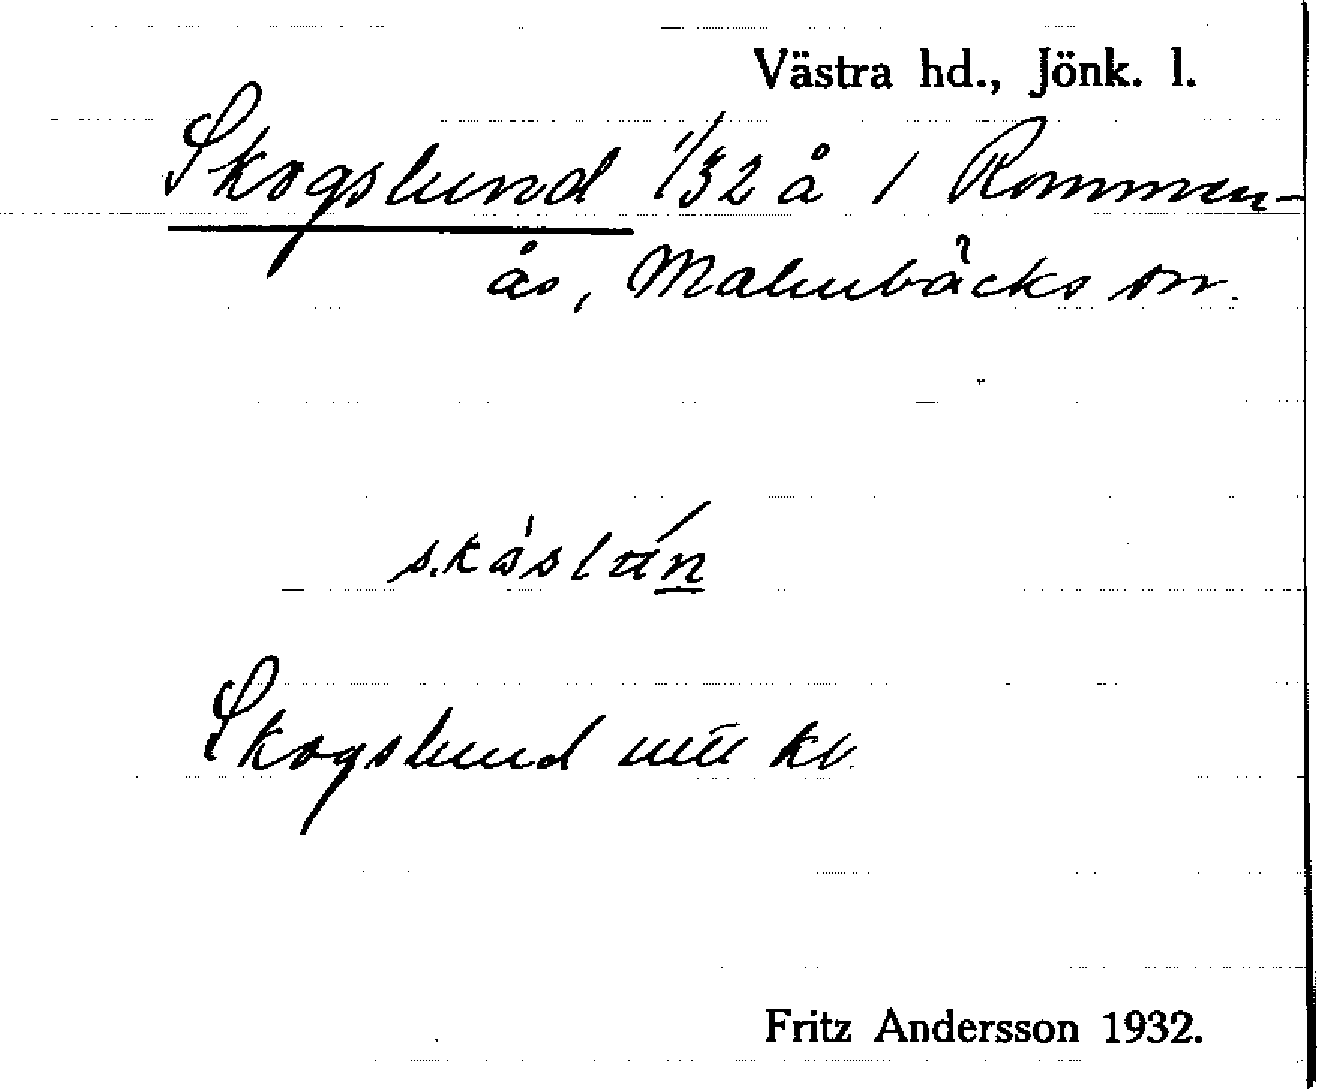 Västra hd., Jönk. l.
Skogslund 1/32 å 1 Rommen-
ås, Malmbäcks sn.
Skogslund
Fritz Andersson 1932.